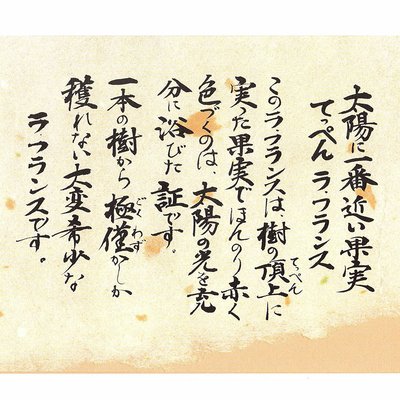 太陽に一番近い果実
てっぺんラ・フランス
このラ・フランスは、樹の頂上に
てっぺん
実った果実でほんのり赤く
色づくのは、太陽の光を充
分に浴びた証です。
一本の樹から極僅かしか
ごくわず
穫れない大変希少な
ラ・フランスです。